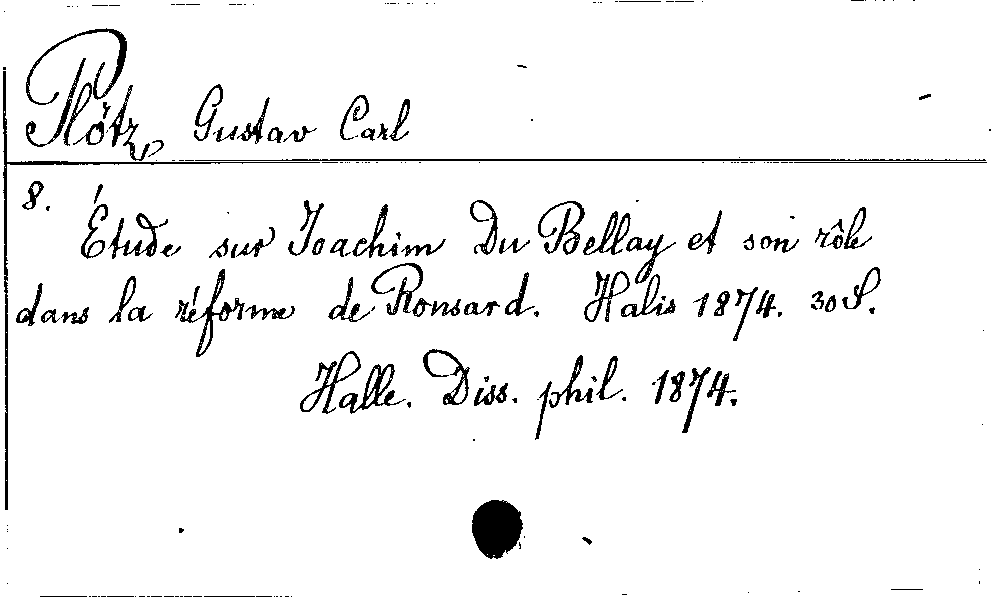 Plötz, Gustav Carl
8.
Étude sur Joachim Du Bellay et son rôle
dans la réforme de Ronsard. Halis 1874. 30 S.
Halle. Diss. phil. 1874.